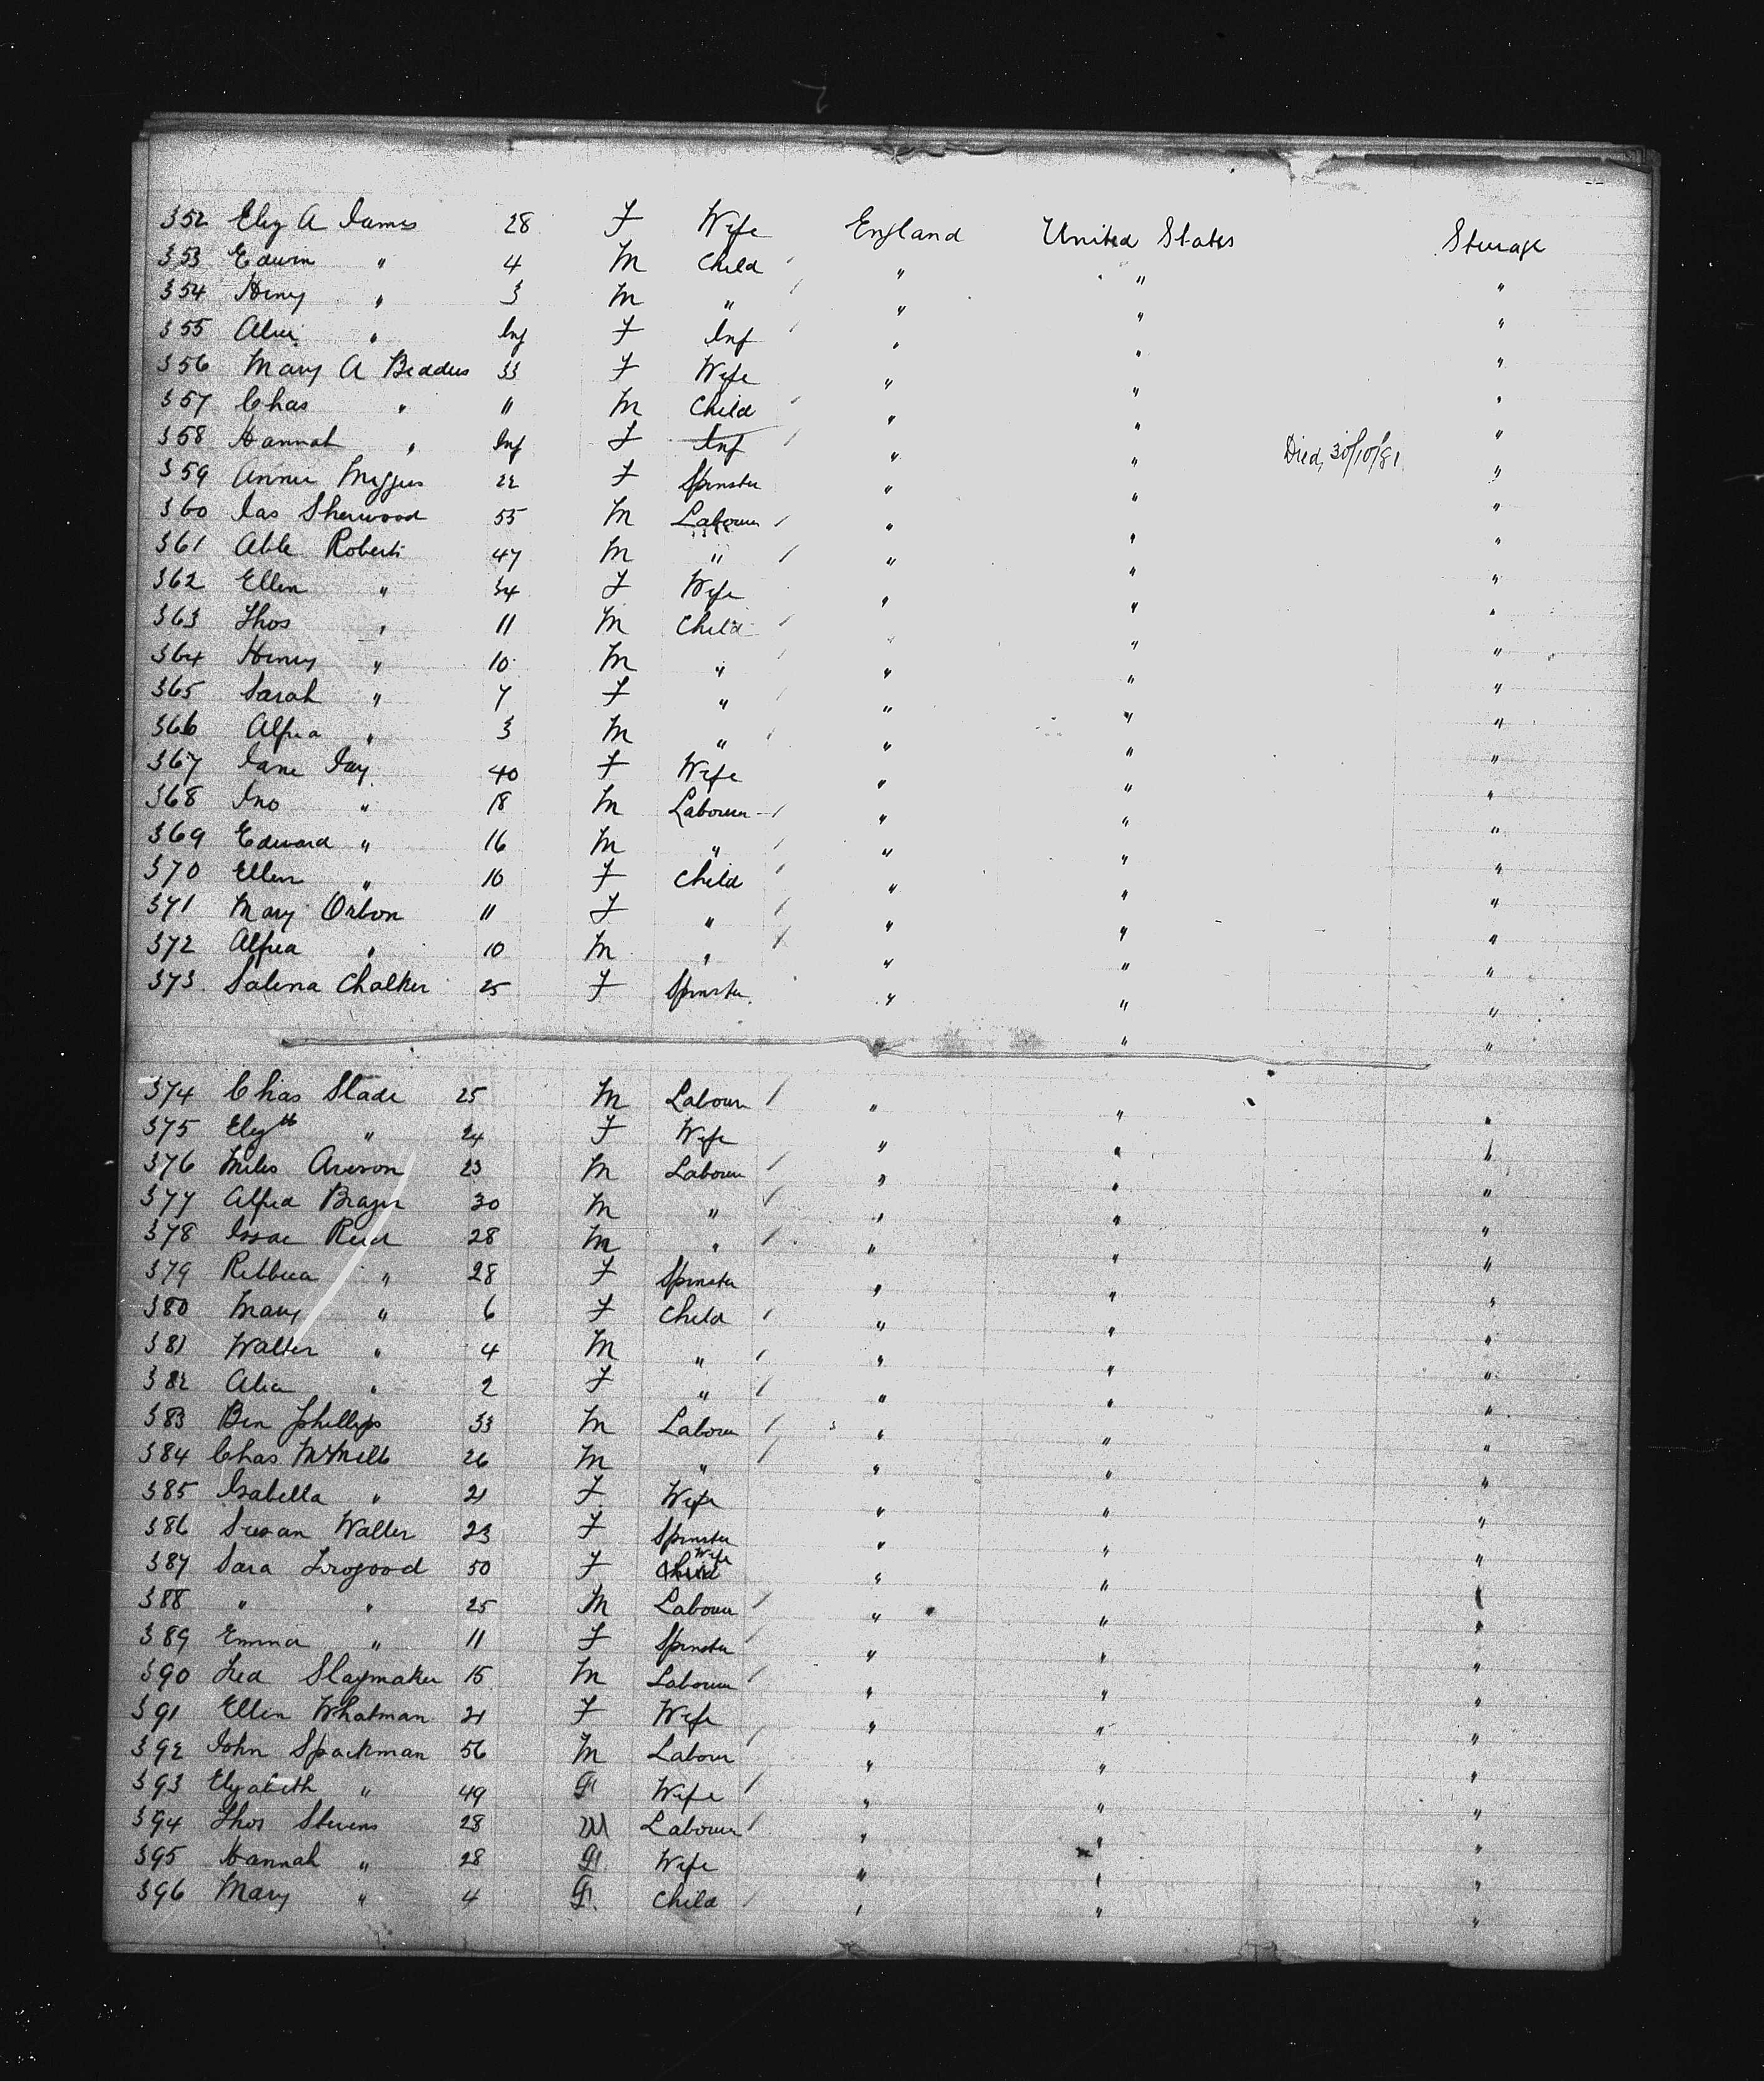 352 Eliz A James 28 F Wife England United States Steerage
353 Edwin " 4 M Child " " "
354 Henry " 3 M " " " "
355 Alice " Inf F Inf " " "
356 Mary A Beddus 33 F Wife " " "
357 Chas " 11 M Child " " "
358 Hannah " Inf F Inf " " Died, 30/10/81 "
359 Annie 22 F Spinster " " "
360 Jas Sherwood 55 M Labourer " " "
361 Able Roberts 47 M " " " "
362 Ellen " 34 F Wife " " "
363 Thos " 11 M Child " " "
364 Henry " 10 M " " " "
365 Sarah " 7 F " " " "
366 Alfred " 3 M " " " "
367 Jane Jay 40 F Wife " " "
368 Jno " 18 M Labourer " " "
369 Edward " 16 M " " " "
370 Ellen " 10 F Child " " "
371 Mary Orbon 11 F " " " "
372 Alfred " 10 M " " " "
373 Salena Chalker 25 F Spinster " " "
374 Chas Slade 25 M Labourer " " "
375 Elizth " 24 F Wife " " "
376 Miles 23 M Labourer " " "
377 Alfred 30 M " " " "
378 Issac Reed 28 M " " " "
379 Rebbeca " 28 F Spinster " " "
380 Mary " 6 F Child " " "
381 Walter " 4 M " " " "
382 Alice " 2 F " " " "
383 Ben Phillips 33 M Labourer " " "
384 Chas 26 M " " " "
385 Isabella " 21 F Wife " " "
386 Susan Walter 23 F Spinster " " "
387 Sara 50 F Child Wife " " "
388 " " 25 M Labourer " " "
389 Emma " 11 F Spinster " " "
390 Fred Slaymaker 15 M Labourer " " "
391 Ellen Whatman 21 F Wife " " "
392 John Spackman 56 M Labourer " " "
393 Elizabeth " 49 F Wife " " "
394 Thos Stevens 28 M Labourer " " "
395 Hannah " 28 F Wife " " "
396 Mary " 4 F Child " " "